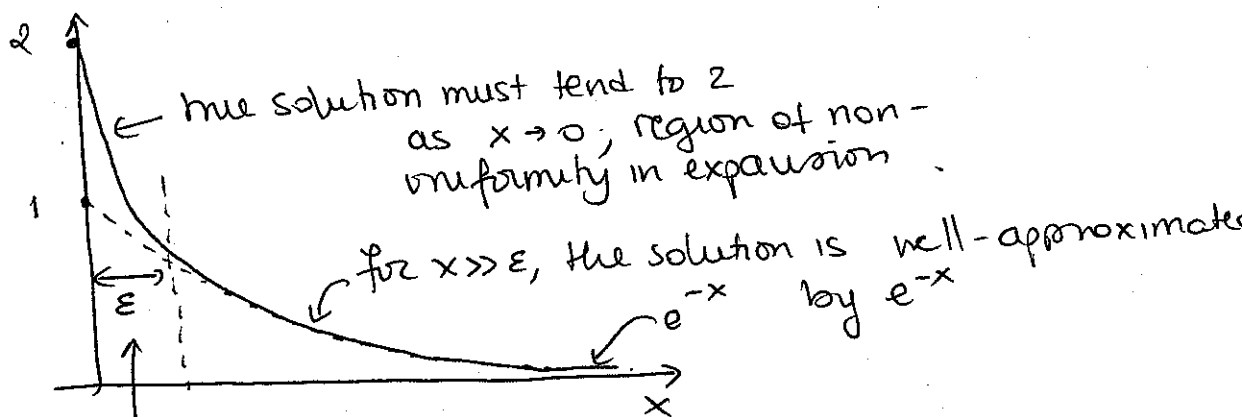 2
true solution must tend to 2
as x → 0; region of non-
uniformity in expansion.
1
for x >> ε, the solution is well-approximate
e^{-x} by e^{-x}
ε
x